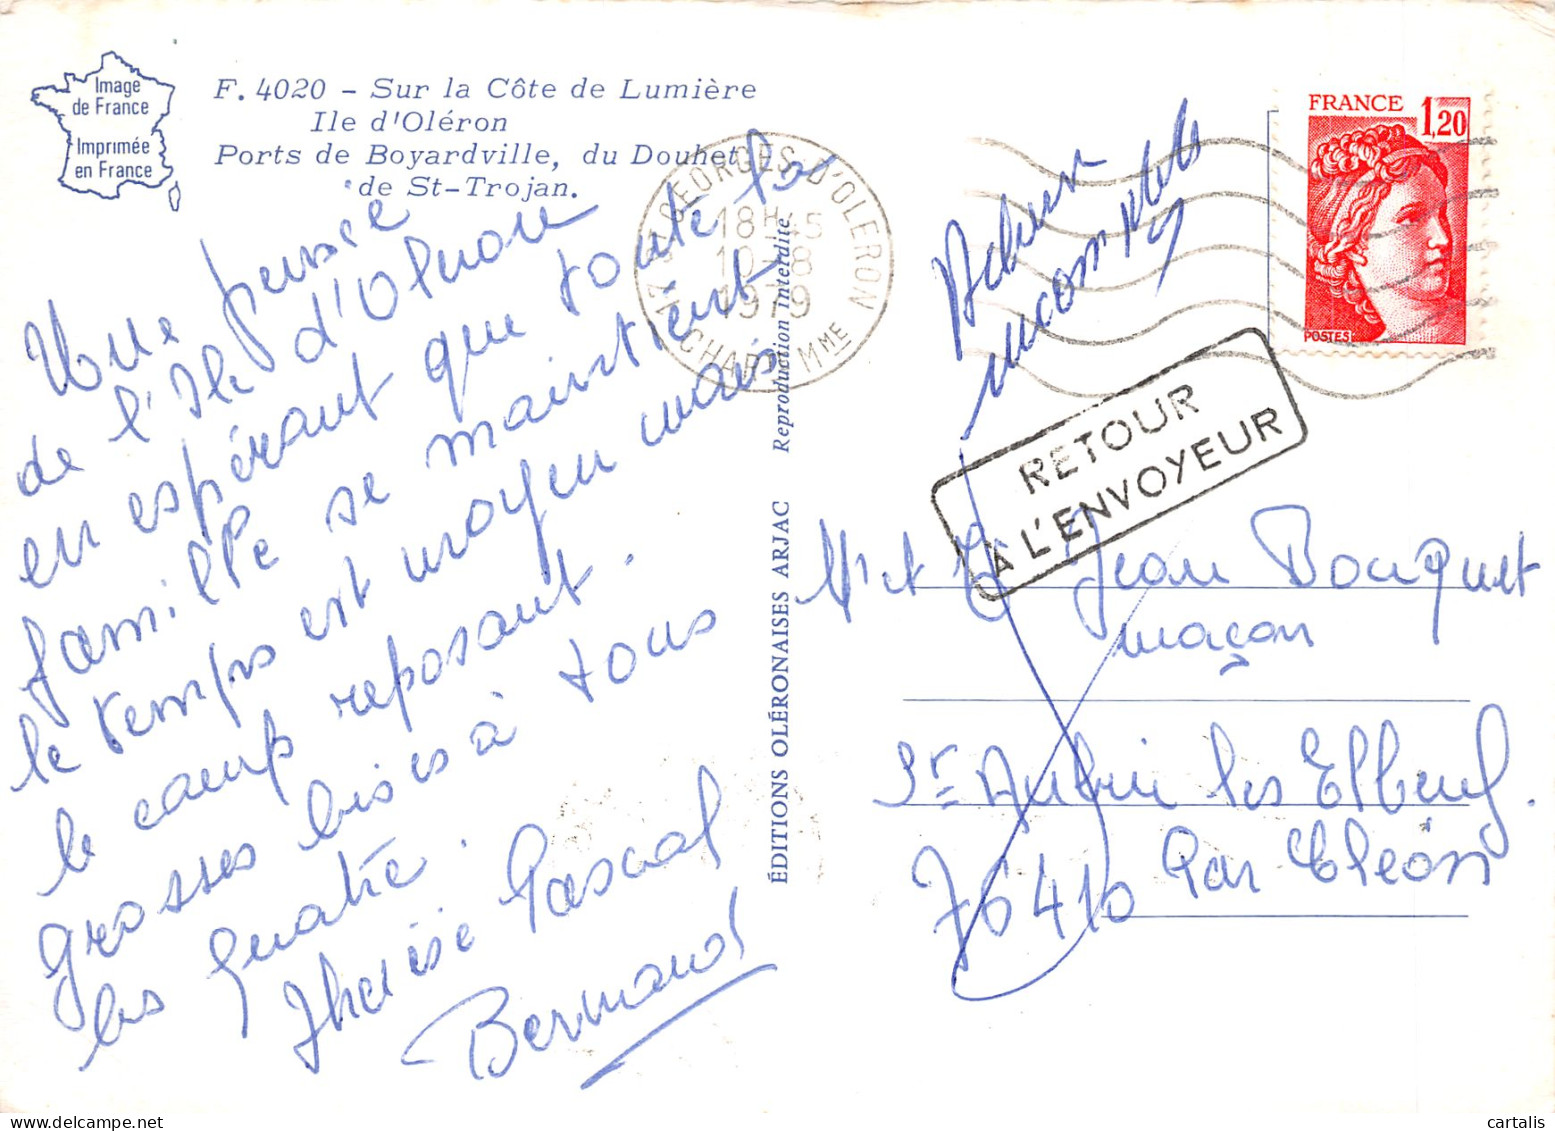 Image
de France
Imprimée
en France
F. 4020 - Sur la Côte de Lumière
Ile d'Oléron
Ports de Boyardville, du Douhet
de St-Trojan.
Une pensée
de l'Ile d'Oléron
en espérant que toute la
famille se maintient
le temps est moyen mais
le camp reposant.
grosses bises à tous
les quatre.
Thérèse Pascal
Bernard
17 ST GEORGES D'OLERON
18H 45
10-8
1979
CHARTE MME
Reproduction interdite
ÉDITIONS OLÉRONAISES ARJAC
FRANCE
1,20
POSTES
inconnu
RETOUR
A L'ENVOYEUR
Mr et Jean Bocquet
maçon
St Aubin les Elbeuf.
76410 Par Cléon
cartalis